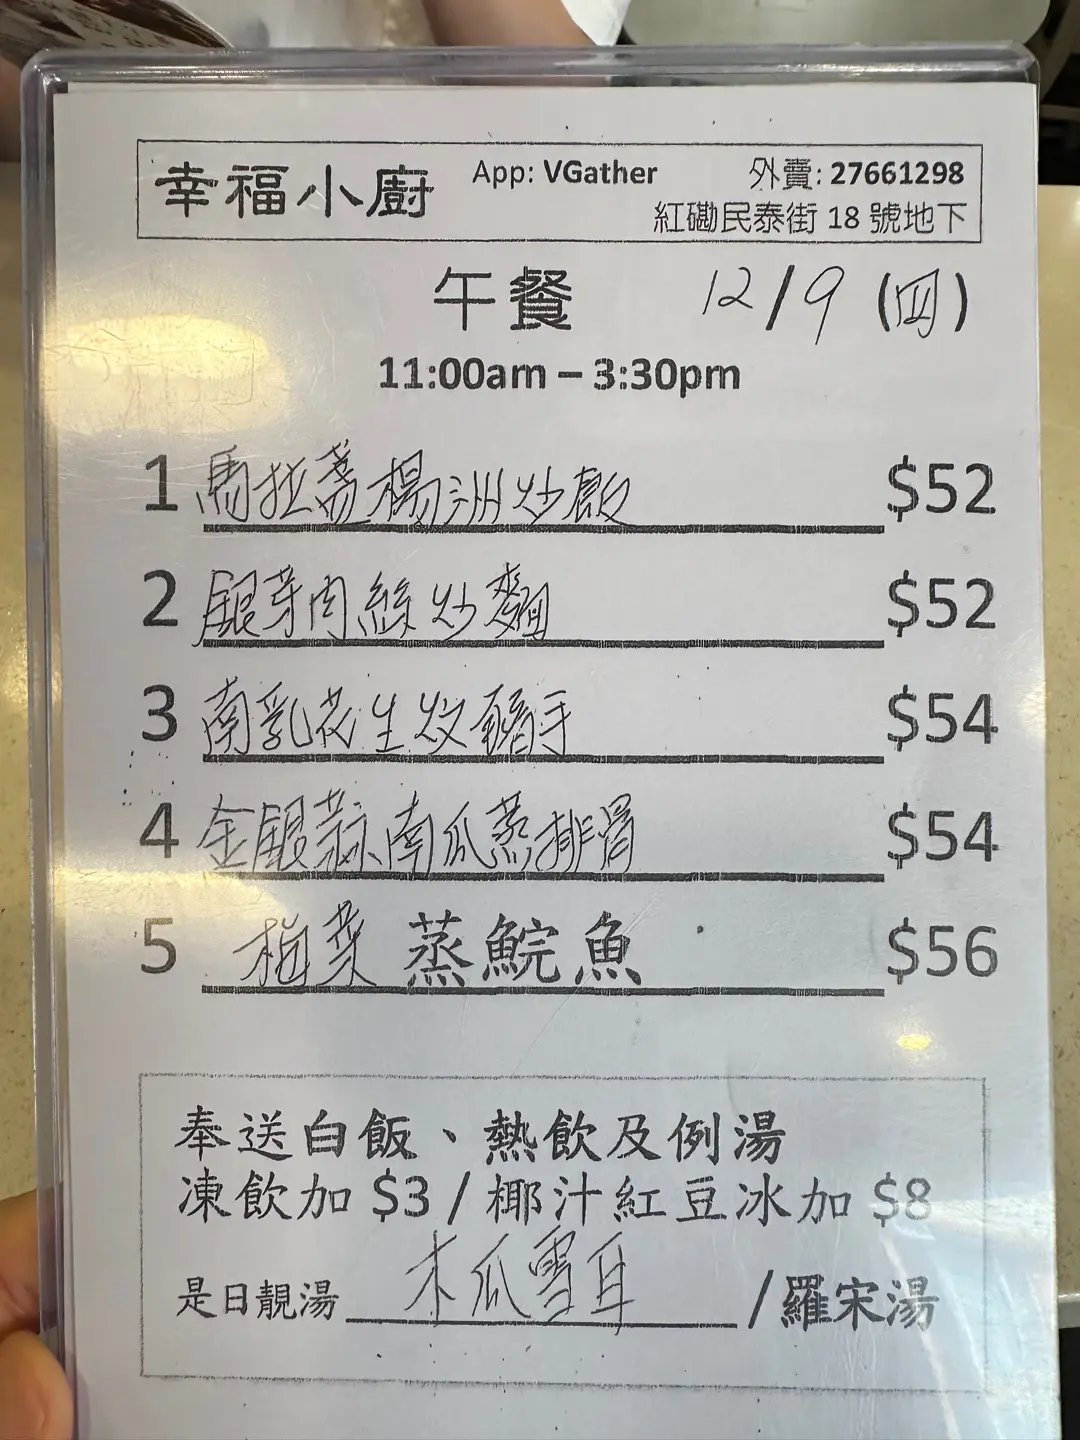 幸福小廚 App: VGather 外賣: 27661298
紅磡民泰街 18 號地下
午餐 12/9 (四)
11:00am – 3:30pm
1 馬拉盞楊洲炒飯 $52
2 銀芽肉絲炒麵 $52
3 南乳花生炆豬手 $54
4 金銀蒜南瓜蒸排骨 $54
5 梅菜蒸鯇魚 $56
奉送白飯、熱飲及例湯
凍飲加 $3 / 椰汁紅豆冰加 $8
是日靚湯 木瓜雪耳 /羅宋湯